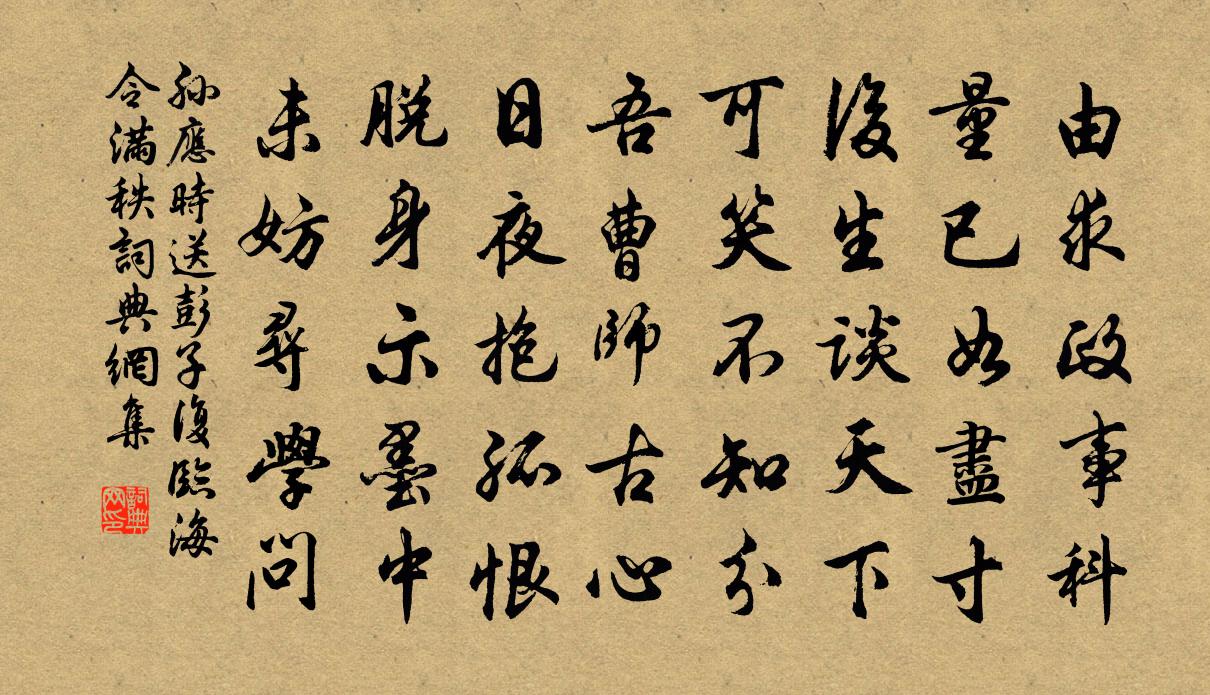 由求政事科
量已如盡寸
後生談天下
可笑不知分
吾曹師古心
日夜抱孤恨
脱身示墨中
未妨尋學問
孫應時送彭子復臨海
令滿秩詞典網集
詞典
网印